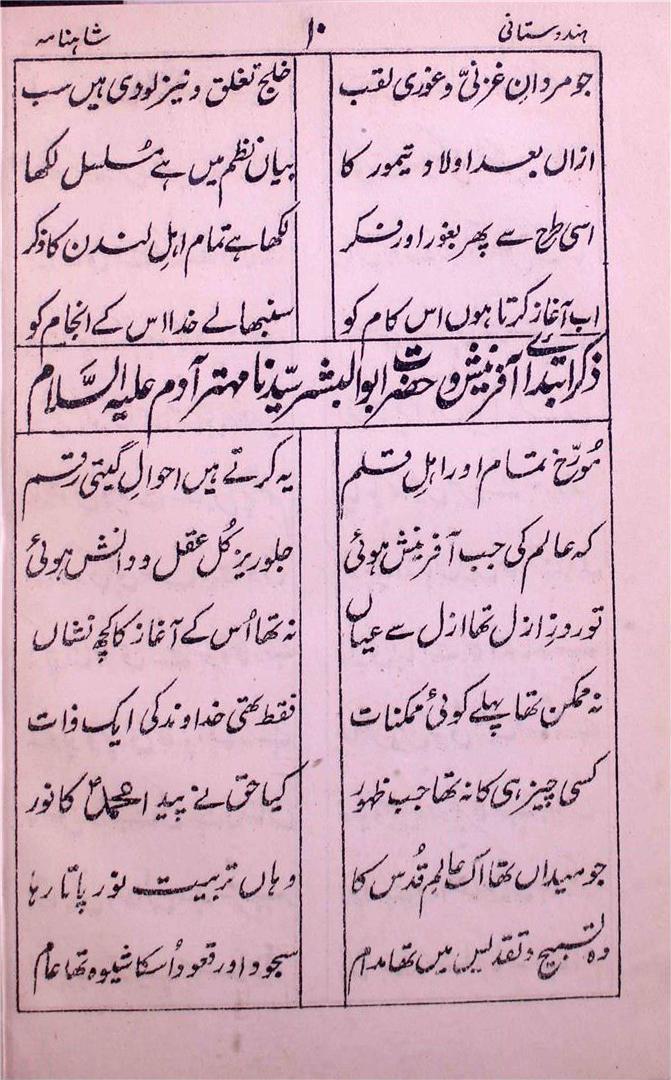 ہندوستانی ۱۰ شاہنامہ
جو مردانِ غزنی و غوری لقب خلج تغلق و نیز لودی ہیں سب
ازاں بعد اولاد تیمور کا بیاں نظم میں ہے مسلسل لکھا
اسی طرح سے پھر بغور اور فکر لکھا ہے تمام اہلِ لندن کا ذکر
اب آغاز کرتا ہوں اس کام کو سنبھالے خدا اس کے انجام کو
ذکر ابتدائے آفرینش و حضرت ابوالبشر سیّدنا مہتر آدم علیہ السَّلام
مُورّخ تمام اور اہلِ قلم یہ کرتے ہیں احوالِ گیتی رقم
کہ عالم کی جب آفرینش ہوئی جلوریز کُل عقل و دانش ہوئی
تو روزِ ازل تھا ازل سے عیاں نہ تھا اُس کے آغاز کا کچھ نشاں
نہ ممکن تھا پہلے کوئی ممکنات فقط تھی خداوند کی ایک ذات
کسی چیز ہی کا نہ تھا جب ظہور کیا حق نے پیدا محمدؐ کا نور
جو میداں تھا اک عالمِ قُدس کا وہاں تربیت نور پاتا رہا
وہ تسبیح و تقدیس میں تھا مدام سجود اور قعود اُسکا شیوہ تھا عام